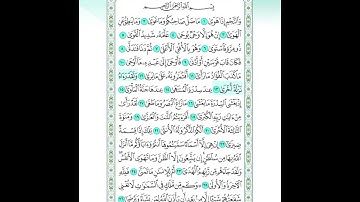 بِسْمِ اللَّهِ الرَّحْمَٰنِ الرَّحِيمِ
وَالنَّجْمِ إِذَا هَوَىٰ ١ مَا ضَلَّ صَاحِبُكُمْ وَمَا غَوَىٰ ٢ وَمَا يَنطِقُ عَنِ
الْهَوَىٰ ٣ إِنْ هُوَ إِلَّا وَحْيٌ يُوحَىٰ ٤ عَلَّمَهُ شَدِيدُ الْقُوَىٰ ٥
ذُو مِرَّةٍ فَاسْتَوَىٰ ٦ وَهُوَ بِالْأُفُقِ الْأَعْلَىٰ ٧ ثُمَّ دَنَا فَتَدَلَّىٰ ٨
فَكَانَ قَابَ قَوْسَيْنِ أَوْ أَدْنَىٰ ٩ فَأَوْحَىٰ إِلَىٰ عَبْدِهِ مَا أَوْحَىٰ ١٠
مَا كَذَبَ الْفُؤَادُ مَا رَأَىٰ ١١ أَفَتُمَارُونَهُ عَلَىٰ مَا يَرَىٰ ١٢ وَلَقَدْ رَآهُ
نَزْلَةً أُخْرَىٰ ١٣ عِندَ سِدْرَةِ الْمُنتَهَىٰ ١٤ عِندَهَا جَنَّةُ الْمَأْوَىٰ ١٥
إِذْ يَغْشَى السِّدْرَةَ مَا يَغْشَىٰ ١٦ مَا زَاغَ الْبَصَرُ وَمَا طَغَىٰ ١٧ لَقَدْ رَأَىٰ
مِنْ آيَاتِ رَبِّهِ الْكُبْرَىٰ ١٨ أَفَرَأَيْتُمُ اللَّاتَ وَالْعُزَّىٰ ١٩ وَمَنَاةَ
الثَّالِثَةَ الْأُخْرَىٰ ٢٠ أَلَكُمُ الذَّكَرُ وَلَهُ الْأُنثَىٰ ٢١ تِلْكَ إِذًا قِسْمَةٌ
ضِيزَىٰ ٢٢ إِنْ هِيَ إِلَّا أَسْمَاءٌ سَمَّيْتُمُوهَا أَنتُمْ وَآبَاؤُكُم مَّا أَنزَلَ اللَّهُ
بِهَا مِن سُلْطَانٍ إِن يَتَّبِعُونَ إِلَّا الظَّنَّ وَمَا تَهْوَى الْأَنفُسُ
وَلَقَدْ جَاءَهُم مِّن رَّبِّهِمُ الْهُدَىٰ ٢٣ أَمْ لِلْإِنسَانِ مَا تَمَنَّىٰ ٢٤ فَلِلَّهِ
الْآخِرَةُ وَالْأُولَىٰ ٢٥ وَكَم مِّن مَّلَكٍ فِي السَّمَاوَاتِ لَا تُغْنِي